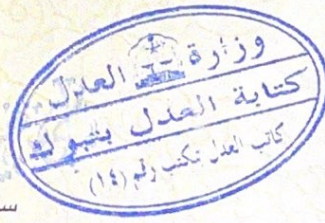 وزارة العدل
كتابة العدل بتبوك
كاتب العدل بمكتب رقم (١٤)